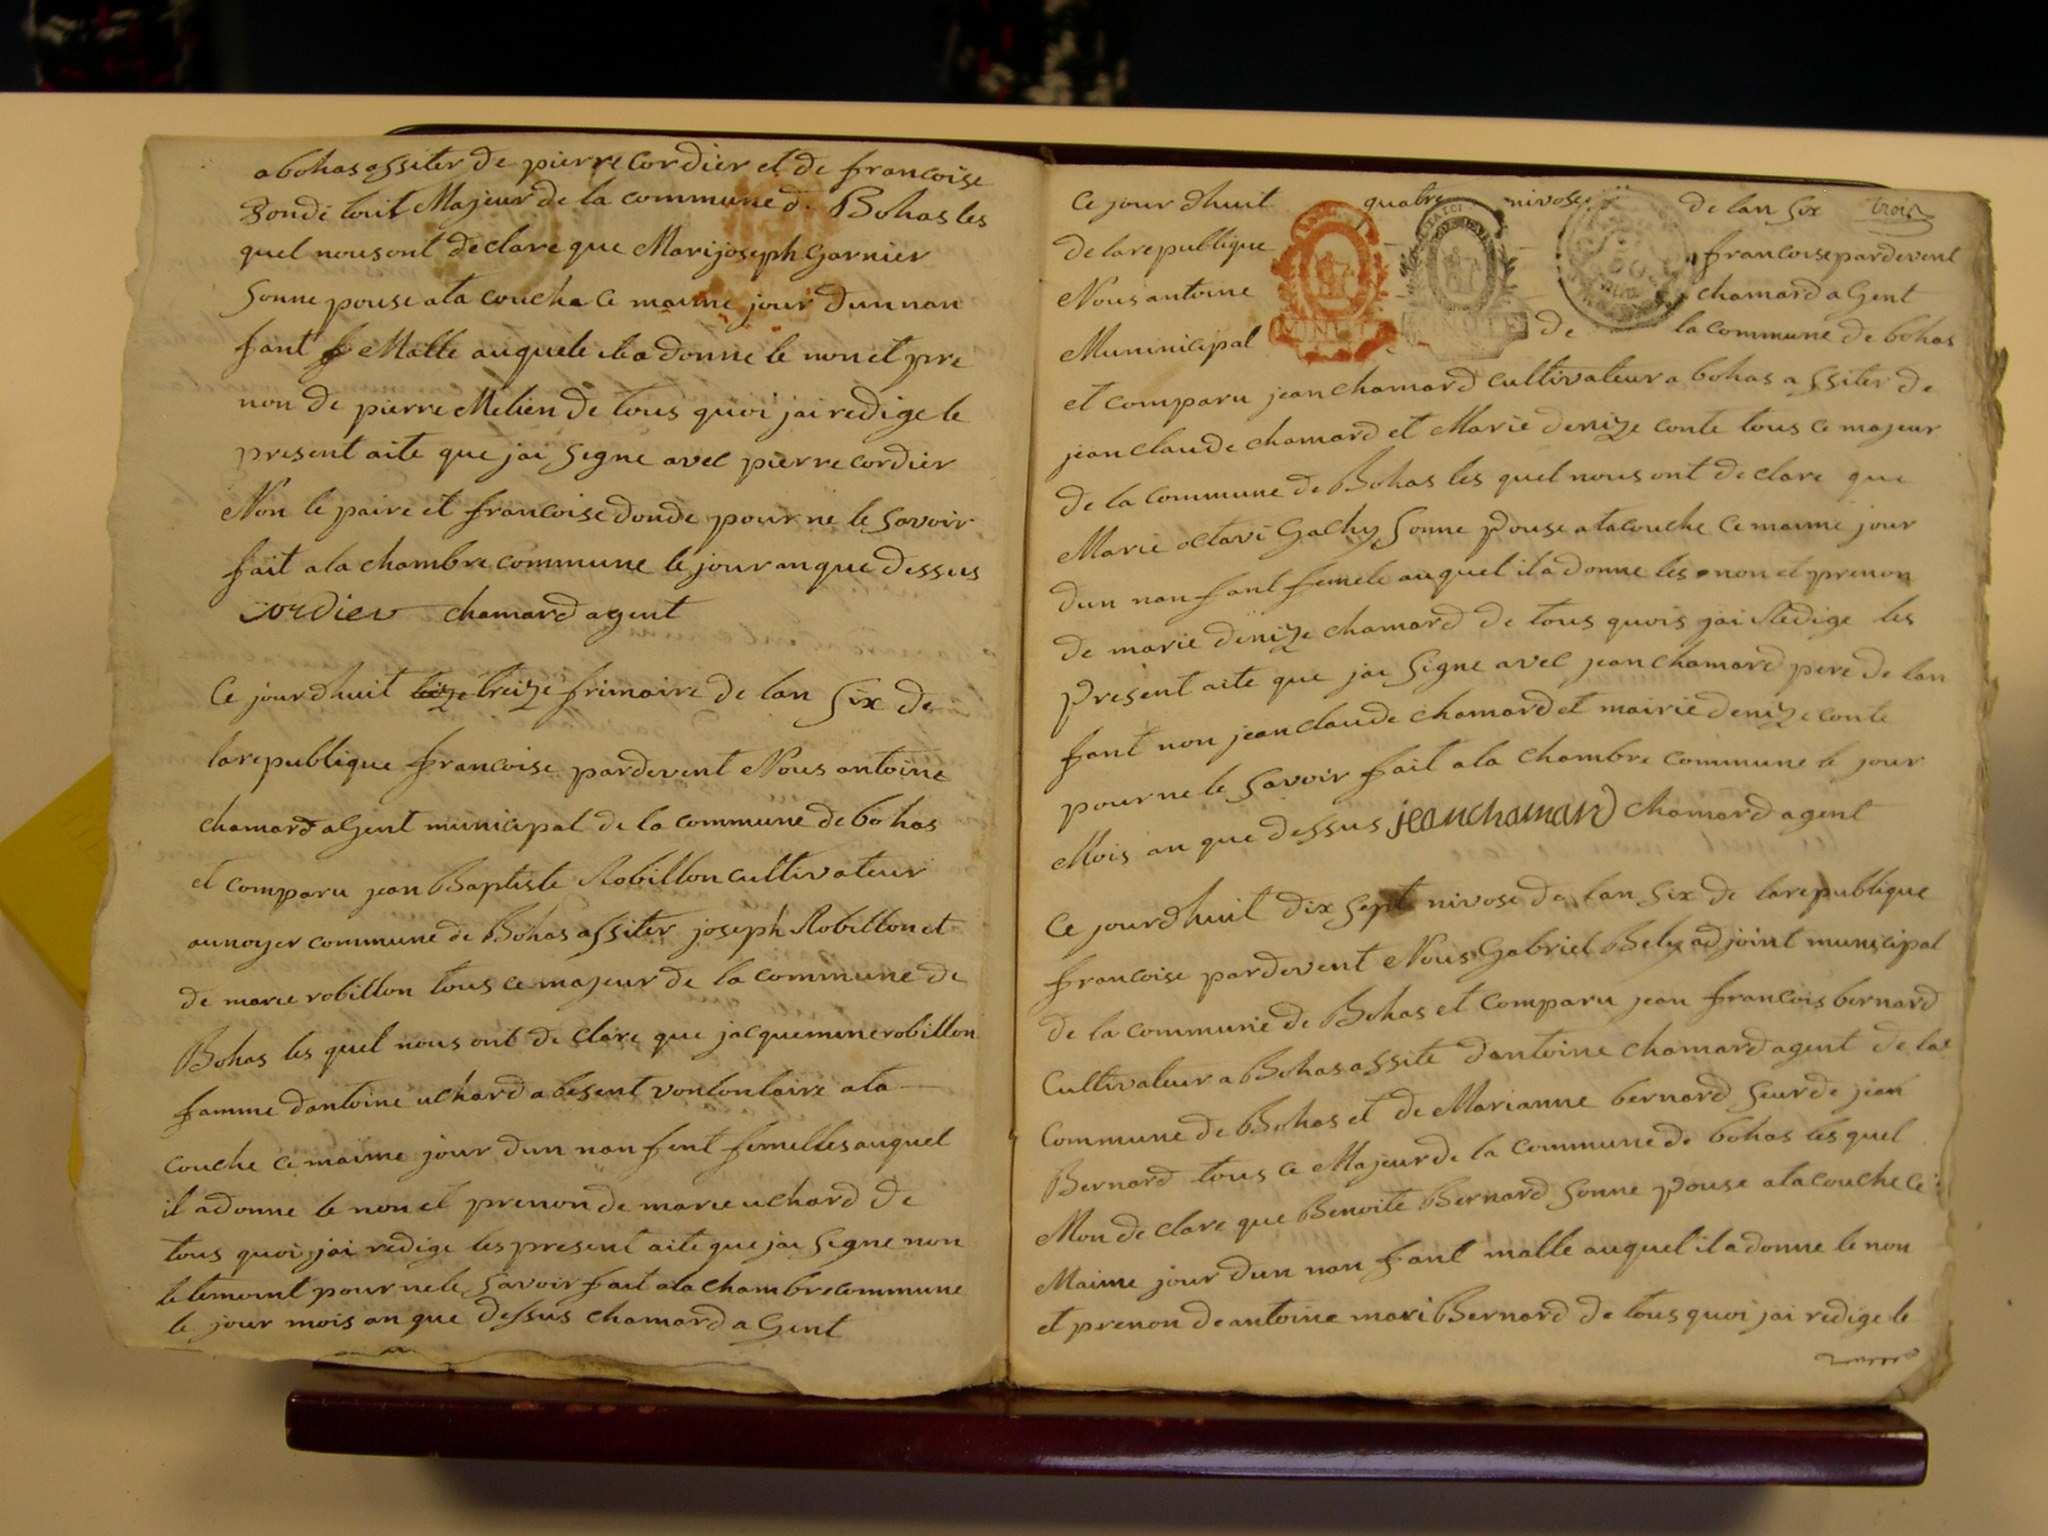 a bohas assiter de pierre cordier et de francoise
donde tout Majeur de la commune d. Bohas les
quel nous ont declare que Marijoseph Garnier
Sonne pouse ata couche ce maime jour dun nan
fant Malle auquele ila donne le non et pre
non de pierre Melien de tous quoi jai redige le
present aite que jai Segne avec pierre cordier
Non le paire et francoise donde pour ne le Savoir
fait a la chambre commune le jour an que dessus
cordier chamard agent
Ce jourdhuit treize frimaire de lan Six de
larepublique francoise pardevent Nous antoine
chamard aGent municipal de la commune de bohas
et comparu jean Baptiste Robillon cultivateur
au noyer commune de Bohas assiter joseph Robillon et
de marie robillon tous ce majeur de la commune de
Bohas les quel nous ont de clare que jacquemine robillon
famme dantoine uchard abesent vontontaire ata
couche ce maime jour dun nan fent femelles auquel
il adonne le non et prenon de marie uchard de
tous quoi jai redige les present aite que jai Segne non
le temoint pour ne le Savoir fait ala chambre commune
le jour mois an que dessus chamard aGent
Ce jour dhuit quatre nivose de lan Six trois
de larepublique francoise pardevent
Nous antoine chamard aGent
Muninicipal de la commune de bohas
et comparu jean chamard cultivateur a bohas assiter de
jean claude chamard et Marie denize conte tous ce majeur
de la commune de Bohas les quel nous ont de clare que
Marie octavi Gachy Sonne Pouse atacouche ce maime jour
dun nan fant femele auquel il a donne les non et prenon
de marie denize chamard de tous quois jai Redige les
Present aite que jai Signe avec jean chamard pere de lan
fant non jean claude chamard et mairie denize conte
pour ne le Savoir fait ala chambre commune le jour
Mois an que dessus jeanchamard chamard agent
Ce jourdhuit dix sept nivose de lan Six de larepublique
francoise pardevent Nous Gabriel Bely adjoint municipal
de la commune de Bohas et comparu jean francois bernard
Cultivateur a Bohas assite dantoine chamard agent de la
Commune de Bohas et de Marianne bernard Seur de jean
Bernard tous ce Majeur de la commune de bohas les quel
Mon de clare que Benoite Bernard Sonne Pouse atacouche ce
Maime jour dun nan fant malle auquel il a donne le non
et prenon de antoine mari Bernard de tous quoi jai redige le